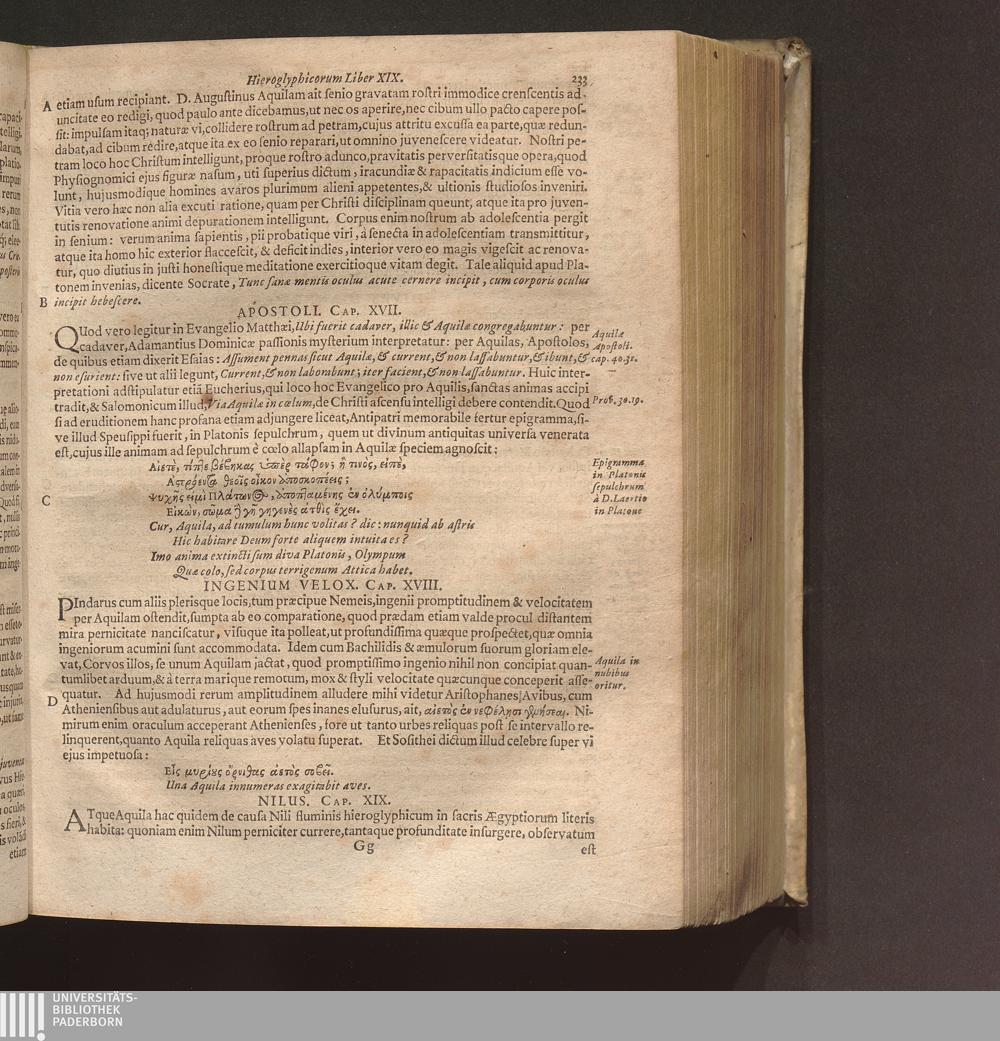 Hieroglyphicorum Liber XIX. 233
A etiam uſum recipiant. D. Auguſtinus Aquilam ait ſenio gravatam roſtri immodice crenſcentis ad-
uncitate eo redigi, quod paulo ante dicebamus, ut nec os aperire, nec cibum ullo pacto capere poſ-
ſit: impulſam itaq; naturæ vi, collidere roſtrum ad petram, cujus attritu excuſſa ea parte, quæ redun-
dabat, ad cibum redire, atque ita ex eo ſenio reparari, ut omnino juveneſcere videatur. Noſtri pe-
tram loco hoc Chriſtum intelligunt, proque roſtro adunco, pravitatis perverſitatisque opera, quod
Phyſiognomici ejus figuræ naſum, uti ſuperius dictum, iracundiæ & rapacitatis indicium eſſe vo-
lunt, hujusmodique homines avaros plurimum alieni appetentes, & ultionis ſtudioſos inveniri.
Vitia vero hæc non alia excuti ratione, quam per Chriſti diſciplinam queunt, atque ita pro juven-
tutis renovatione animi depurationem intelligunt. Corpus enim noſtrum ab adoleſcentia pergit
in ſenium: verum anima ſapientis, pii probatique viri, à ſenecta in adoleſcentiam transmittitur,
atque ita homo hic exterior flacceſcit, & deficit indies, interior vero eo magis vigeſcit ac renova-
tur, quo diutius in juſti honeſtique meditatione exercitioque vitam degit. Tale aliquid apud Pla-
tonem invenias, dicente Socrate, Tunc ſanæ mentis oculus acute cernere incipit, cum corporis oculus
B incipit hebeſcere.
APOSTOLI. CAP. XVII.
QUod vero legitur in Evangelio Matthæi, Ubi fuerit cadaver, illic & Aquilæ congregabuntur: per
cadaver, Adamantius Dominicæ paſſionis myſterium interpretatur: per Aquilas, Apoſtolos,
de quibus etiam dixerit Eſaias: Aſſument pennas ſicut Aquilæ, & current, & non laſſabuntur, & ibunt, &
non eſurient: ſive ut alii legunt, Current, & non laborabunt; iter facient, & non laſſabuntur. Huic inter-
pretationi adſtipulatur etiā Eucherius, qui loco hoc Evangelico pro Aquilis, ſanctas animas accipi
tradit, & Salomonicum illud, Via Aquilæ in cœlum, de Chriſti aſcenſu intelligi debere contendit. Quod
ſi ad eruditionem hanc profana etiam adjungere liceat, Antipatri memorabile fertur epigramma, ſi-
ve illud Speuſippi fuerit, in Platonis ſepulchrum, quem ut divinum antiquitas univerſa venerata
eſt, cujus ille animam ad ſepulchrum è cœlo allapſam in Aquilæ ſpeciem agnoſcit:
Aquilæ
Apoſtoli.
cap. 40.31.
Prov. 30.19.
Αἰετὲ, τίπτε βέβηκας ὑπὲρ τάφον; ἢ τινὸς, εἰπὲ,
Ἀστρόεντα θεοῖς οἶκον ἀποσκοπέεις;
C Ψυχῆς εἰμὶ Πλάτωνος, ἀποπταμένης ἐν ὀλύμποις
Εἰκὼν, σῶμα ἢ γῆ γηγενὲς ἀτθὶς ἔχει.
Epigramma
in Platonis
ſepulchrum
à D. Laertio
in Platone
Cur, Aquila, ad tumulum hunc volitas? dic: nunquid ab aſtris
Hic habitare Deum forte aliquem intuita es?
Imo anima extincti ſum diva Platonis, Olympum
Quæ colo, ſed corpus terrigenum Attica habet.
INGENIUM VELOX. CAP. XVIII.
PIndarus cum aliis plerisque locis, tum præcipue Nemeis, ingenii promptitudinem & velocitatem
per Aquilam oſtendit, ſumpta ab eo comparatione, quod prædam etiam valde procul diſtantem
mira pernicitate nanciſcatur, viſuque ita polleat, ut profundiſſima quæque proſpectet, quæ omnia
ingeniorum acumini ſunt accommodata. Idem cum Bachilidis & æmulorum ſuorum gloriam ele-
vat, Corvos illos, ſe unum Aquilam jactat, quod promptiſſimo ingenio nihil non concipiat quan-
tumlibet arduum, & à terra marique remotum, mox & ſtyli velocitate quæcunque conceperit aſſe-
quatur. Ad hujusmodi rerum amplitudinem alludere mihi videtur Ariſtophanes Avibus, cum
D Athenienſibus aut adulaturus, aut eorum ſpes inanes eluſurus, ait, αἰετὸς ἐν νεφέλησι γενήσεαι. Ni-
mirum enim oraculum acceperant Athenienſes, fore ut tanto urbes reliquas poſt ſe intervallo re-
linquerent, quanto Aquila reliquas aves volatu ſuperat. Et Soſithei dictum illud celebre ſuper vi
ejus impetuoſa:
Aquila in
nubibus
oritur.
Εἷς μυρίους ὄρνιθας ἀετὸς σοβεῖ.
Una Aquila innumeras exagitabit aves.
NILUS. CAP. XIX.
ATque Aquila hac quidem de cauſa Nili fluminis hieroglyphicum in ſacris Ægyptiorum literis
habita: quoniam enim Nilum perniciter currere, tantaque profunditate inſurgere, obſervatum
Gg eſt
UNIVERSITÄTS-
BIBLIOTHEK
PADERBORN